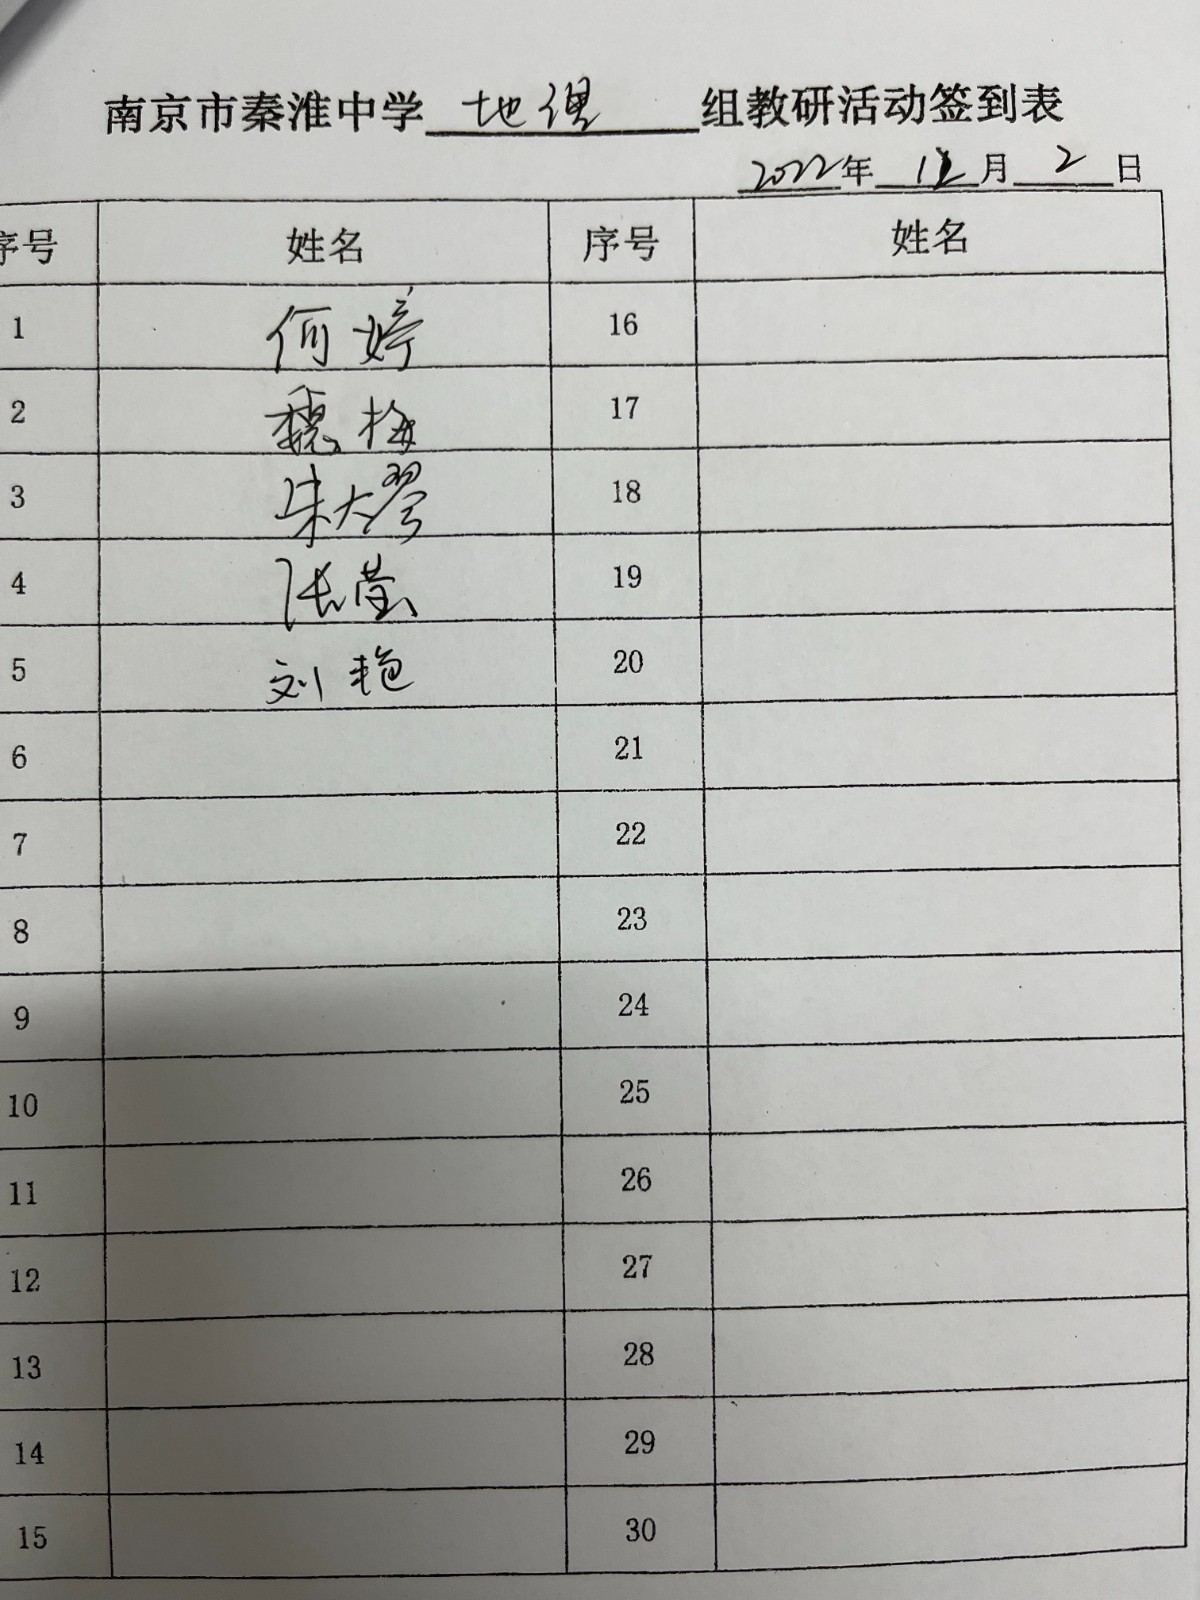 南京市秦淮中学 地理 组教研活动签到表
2022年 12月 2日
序号 姓名 序号 姓名
1 何婷 16
2 魏梅 17
3 朱大琴 18
4 张莹 19
5 刘艳 20
6 21
7 22
8 23
9 24
10 25
11 26
12 27
13 28
14 29
15 30